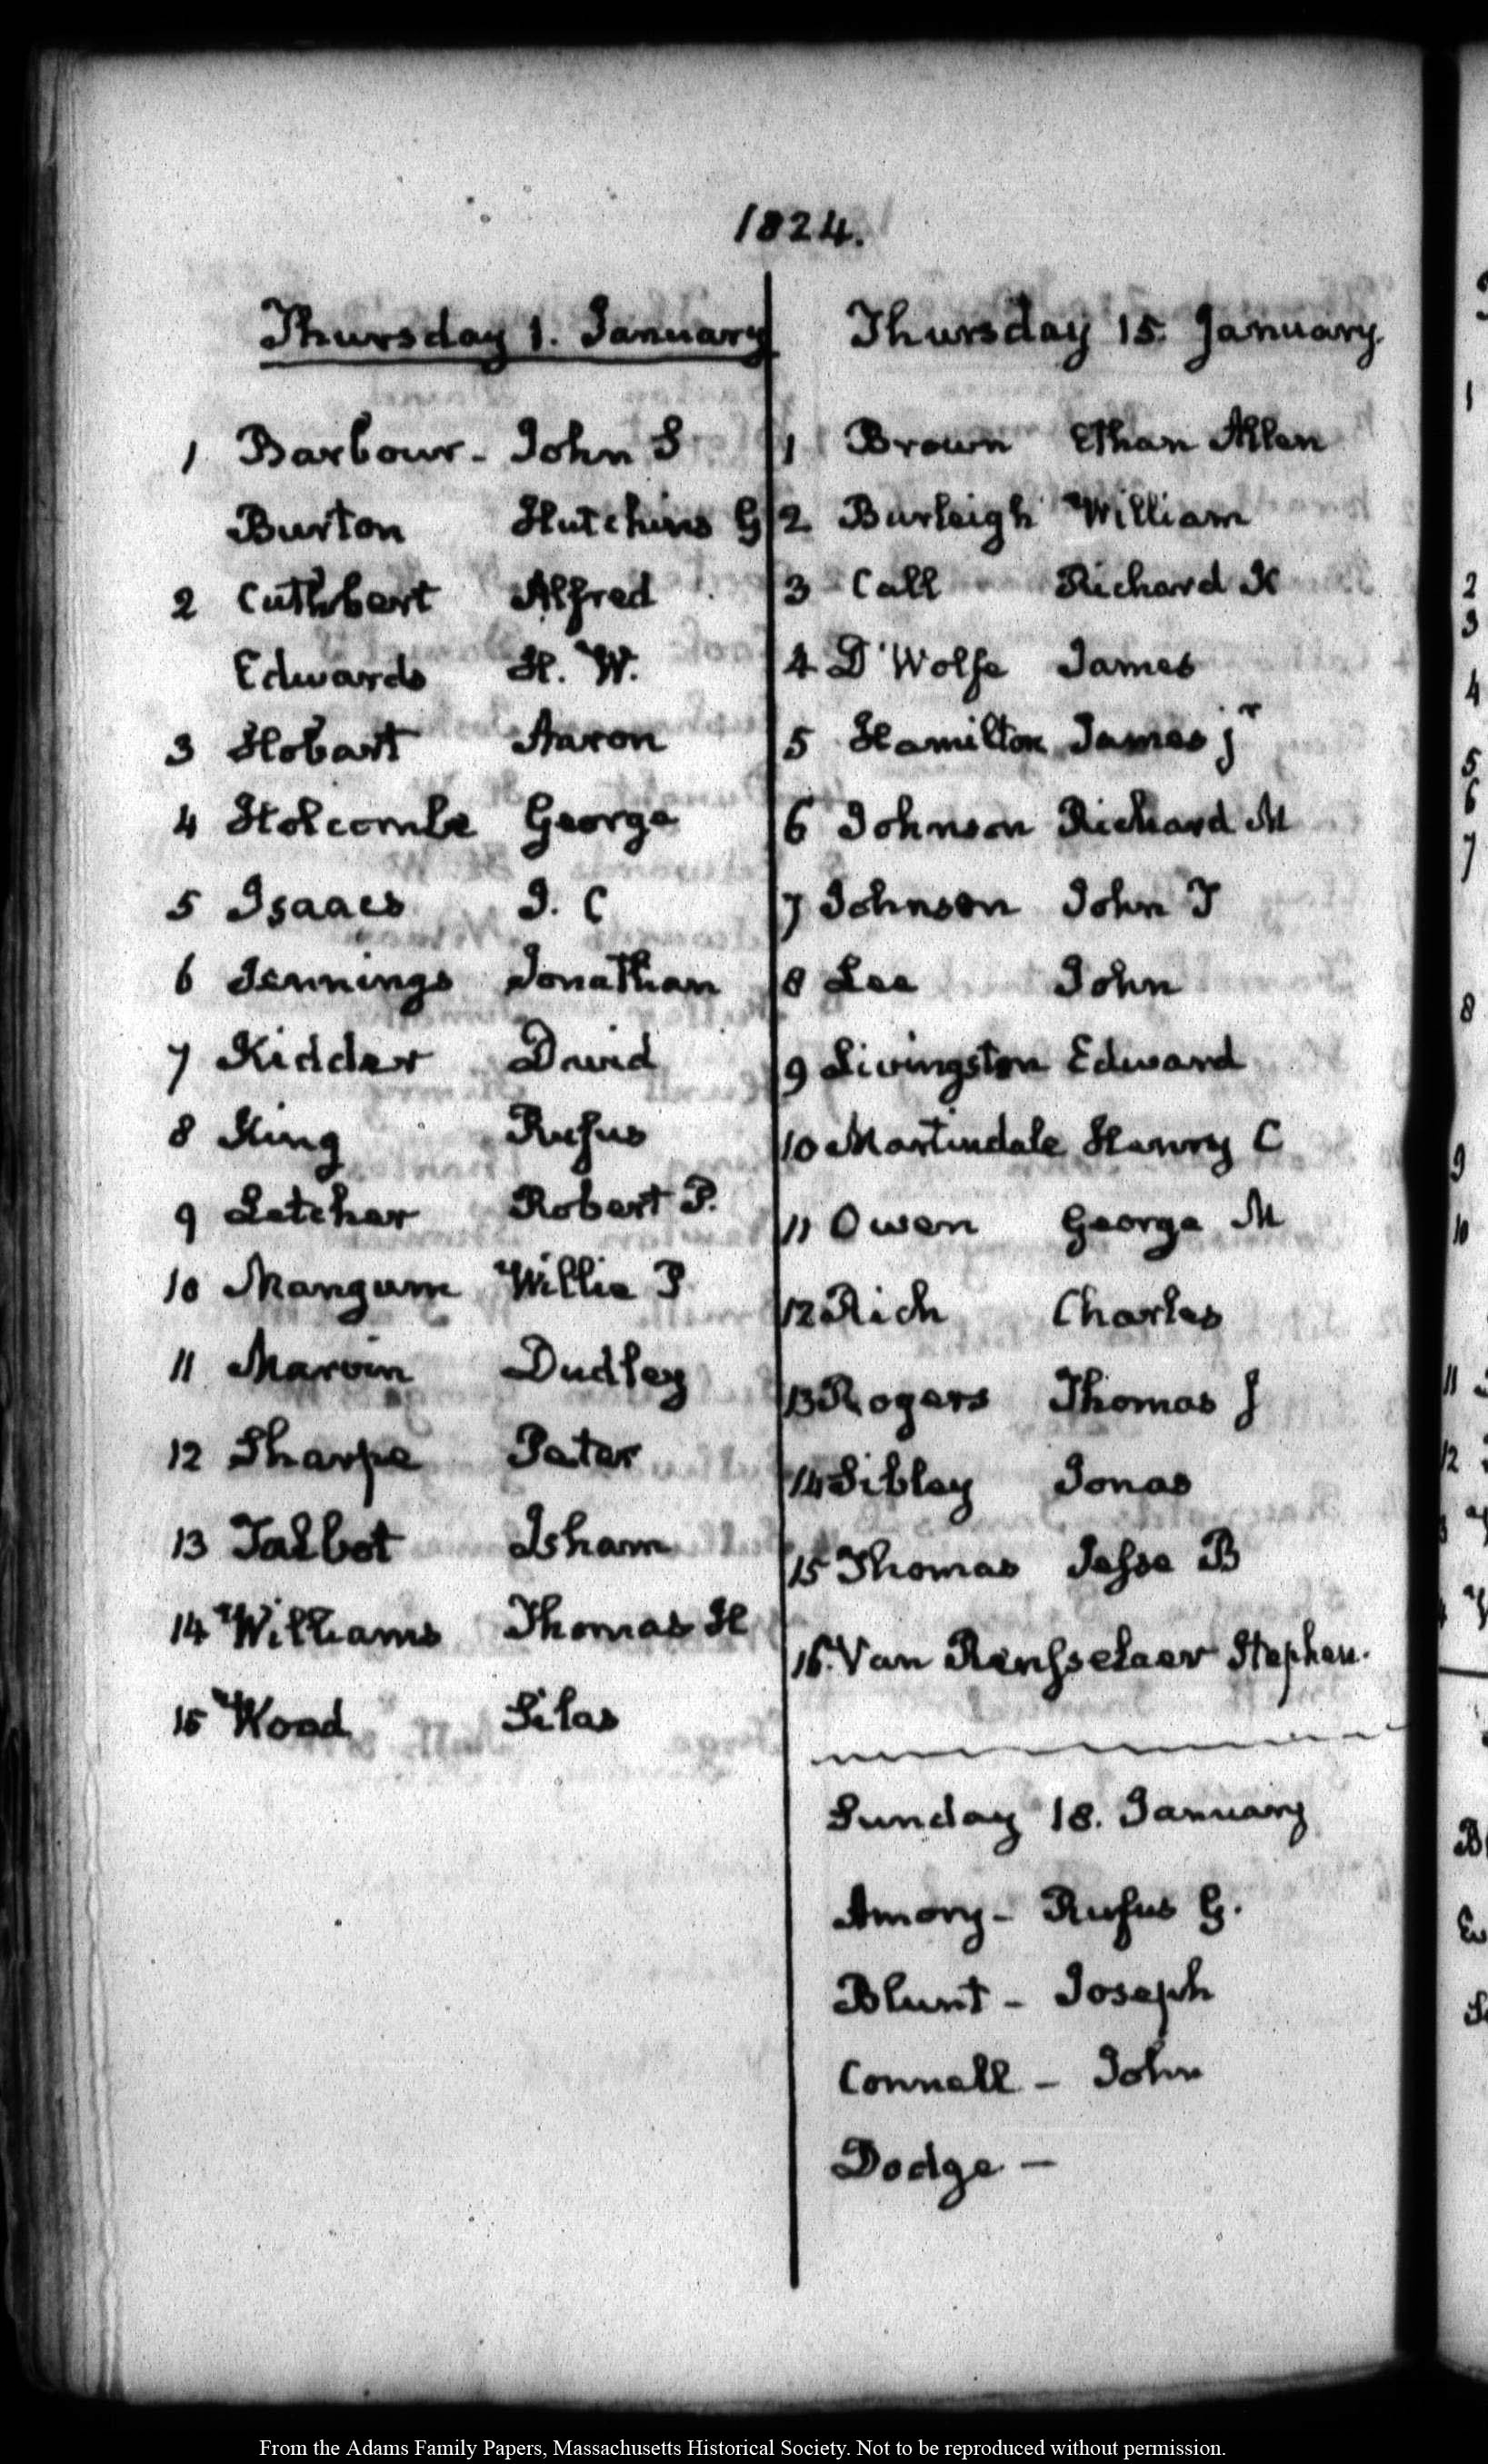 1824.
Thursday 1. January
1 Barbour - John S
Burton Hutchins G
2 Cuthbert Alfred
Edwards H. W.
3 Hobart Aaron
4 Holcombe George
5 Isaacs J. C
6 Jennings Jonathan
7 Kidder David
8 King Rufus
9 Letcher Robert P.
10 Mangum Willie P
11 Marvin Dudley
12 Sharpe Peter
13 Talbot Isham
14 Williams Thomas H
15 Wood Silas
Thursday 15. January.
1 Brown Ethan Allen
2 Burleigh William
3 Call Richard K
4 D'Wolfe James
5 Hamilton James jr
6 Johnson Richard M
7 Johnson John T
8 Lee John
9 Livingston Edward
10 Martindale Henry C
11 Owen George M
12 Rich Charles
13 Rogers Thomas J
14 Sibley Jonas
15 Thomas Jesse B
16. Van Rensselaer Stephen.
Sunday 18. January
Amory - Rufus G.
Blunt - Joseph
Connell - John
Dodge -
From the Adams Family Papers, Massachusetts Historical Society. Not to be reproduced without permission.